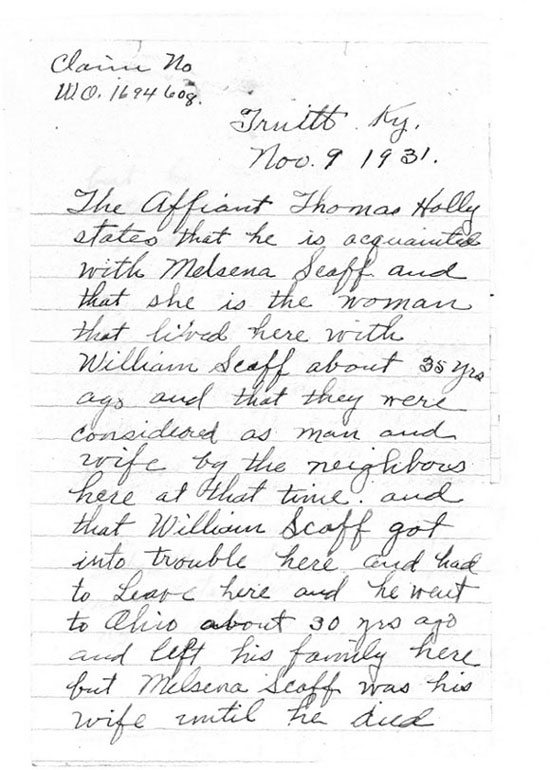 Claim No
W.O. 1694608.
Truitt Ky.
Nov. 9 1931.
The Affiant Thomas Holly
states that he is acquainted
with Melsena Scaff and
that she is the woman
that lived here with
William Scaff about 35 yrs
ago and that they were
considered as man and
wife by the neighbous
here at that time. and
that William Scaff got
into trouble here and had
to Leave here and he went
to Ohio about 30 yrs ago
and left his family here
but Melsena Scaff was his
wife until he died